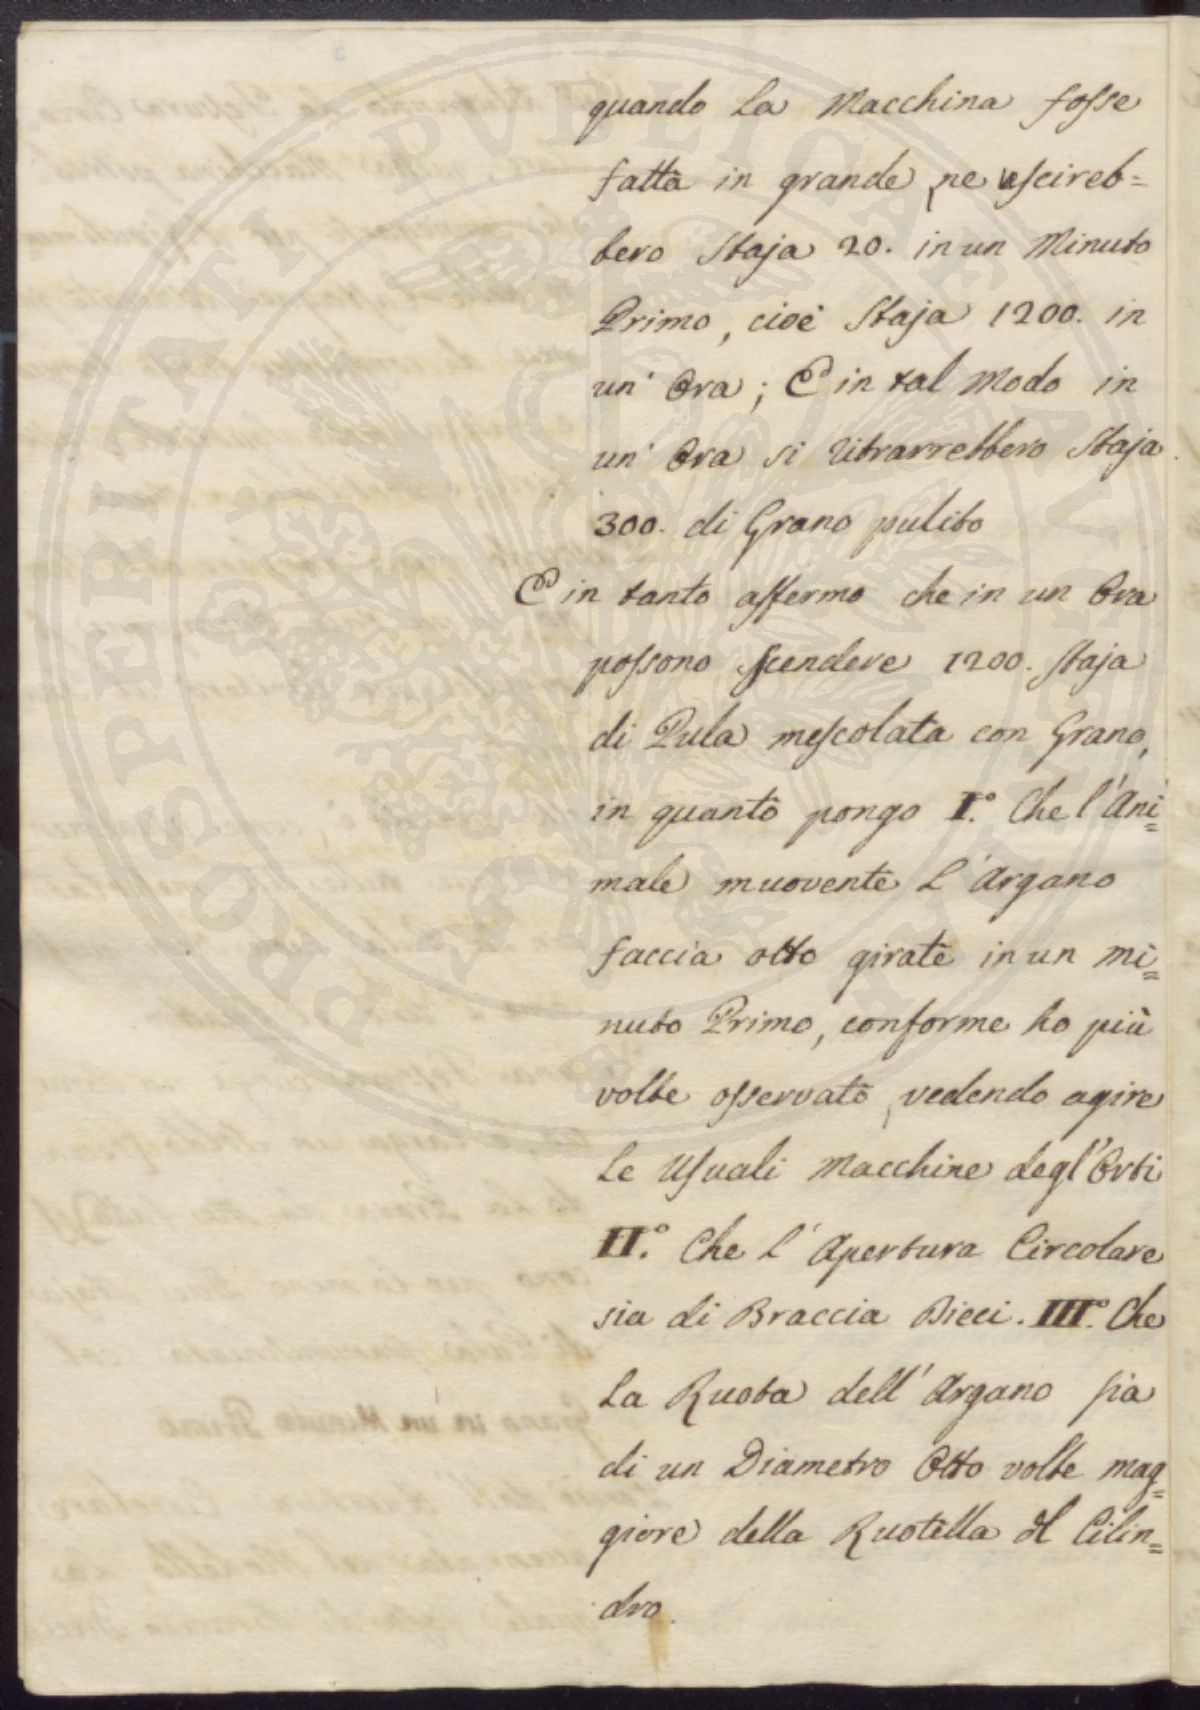 quando la Macchina fosse
fatta in grande, ne uscireb=
bero Staja 20. in un Minuto
Primo, cioè Staja 1200. in
un' Ora; E in tal modo in
un' Ora si ritrarrebbero Staja
300. di Grano pulito
E in tanto affermo che in un Ora
possono scendere 1200. Staja
di Pula mescolata con Grano,
in quanto pongo I.° Che l'Ani=
male muovente l'Argano
faccia otto girate in un mi=
nuto Primo, conforme ho più
volte osservato, vedendo agire
le Usuali Macchine degl'Orti
II.° Che l'Apertura Circolare
sia di Braccia Dieci. III.° Che
la Ruota dell'Argano sia
di un Diametro Otto volte mag=
giore della Ruotella del Cilin=
dro.
PROSPERITATI PUBLICAE AUGENDAE